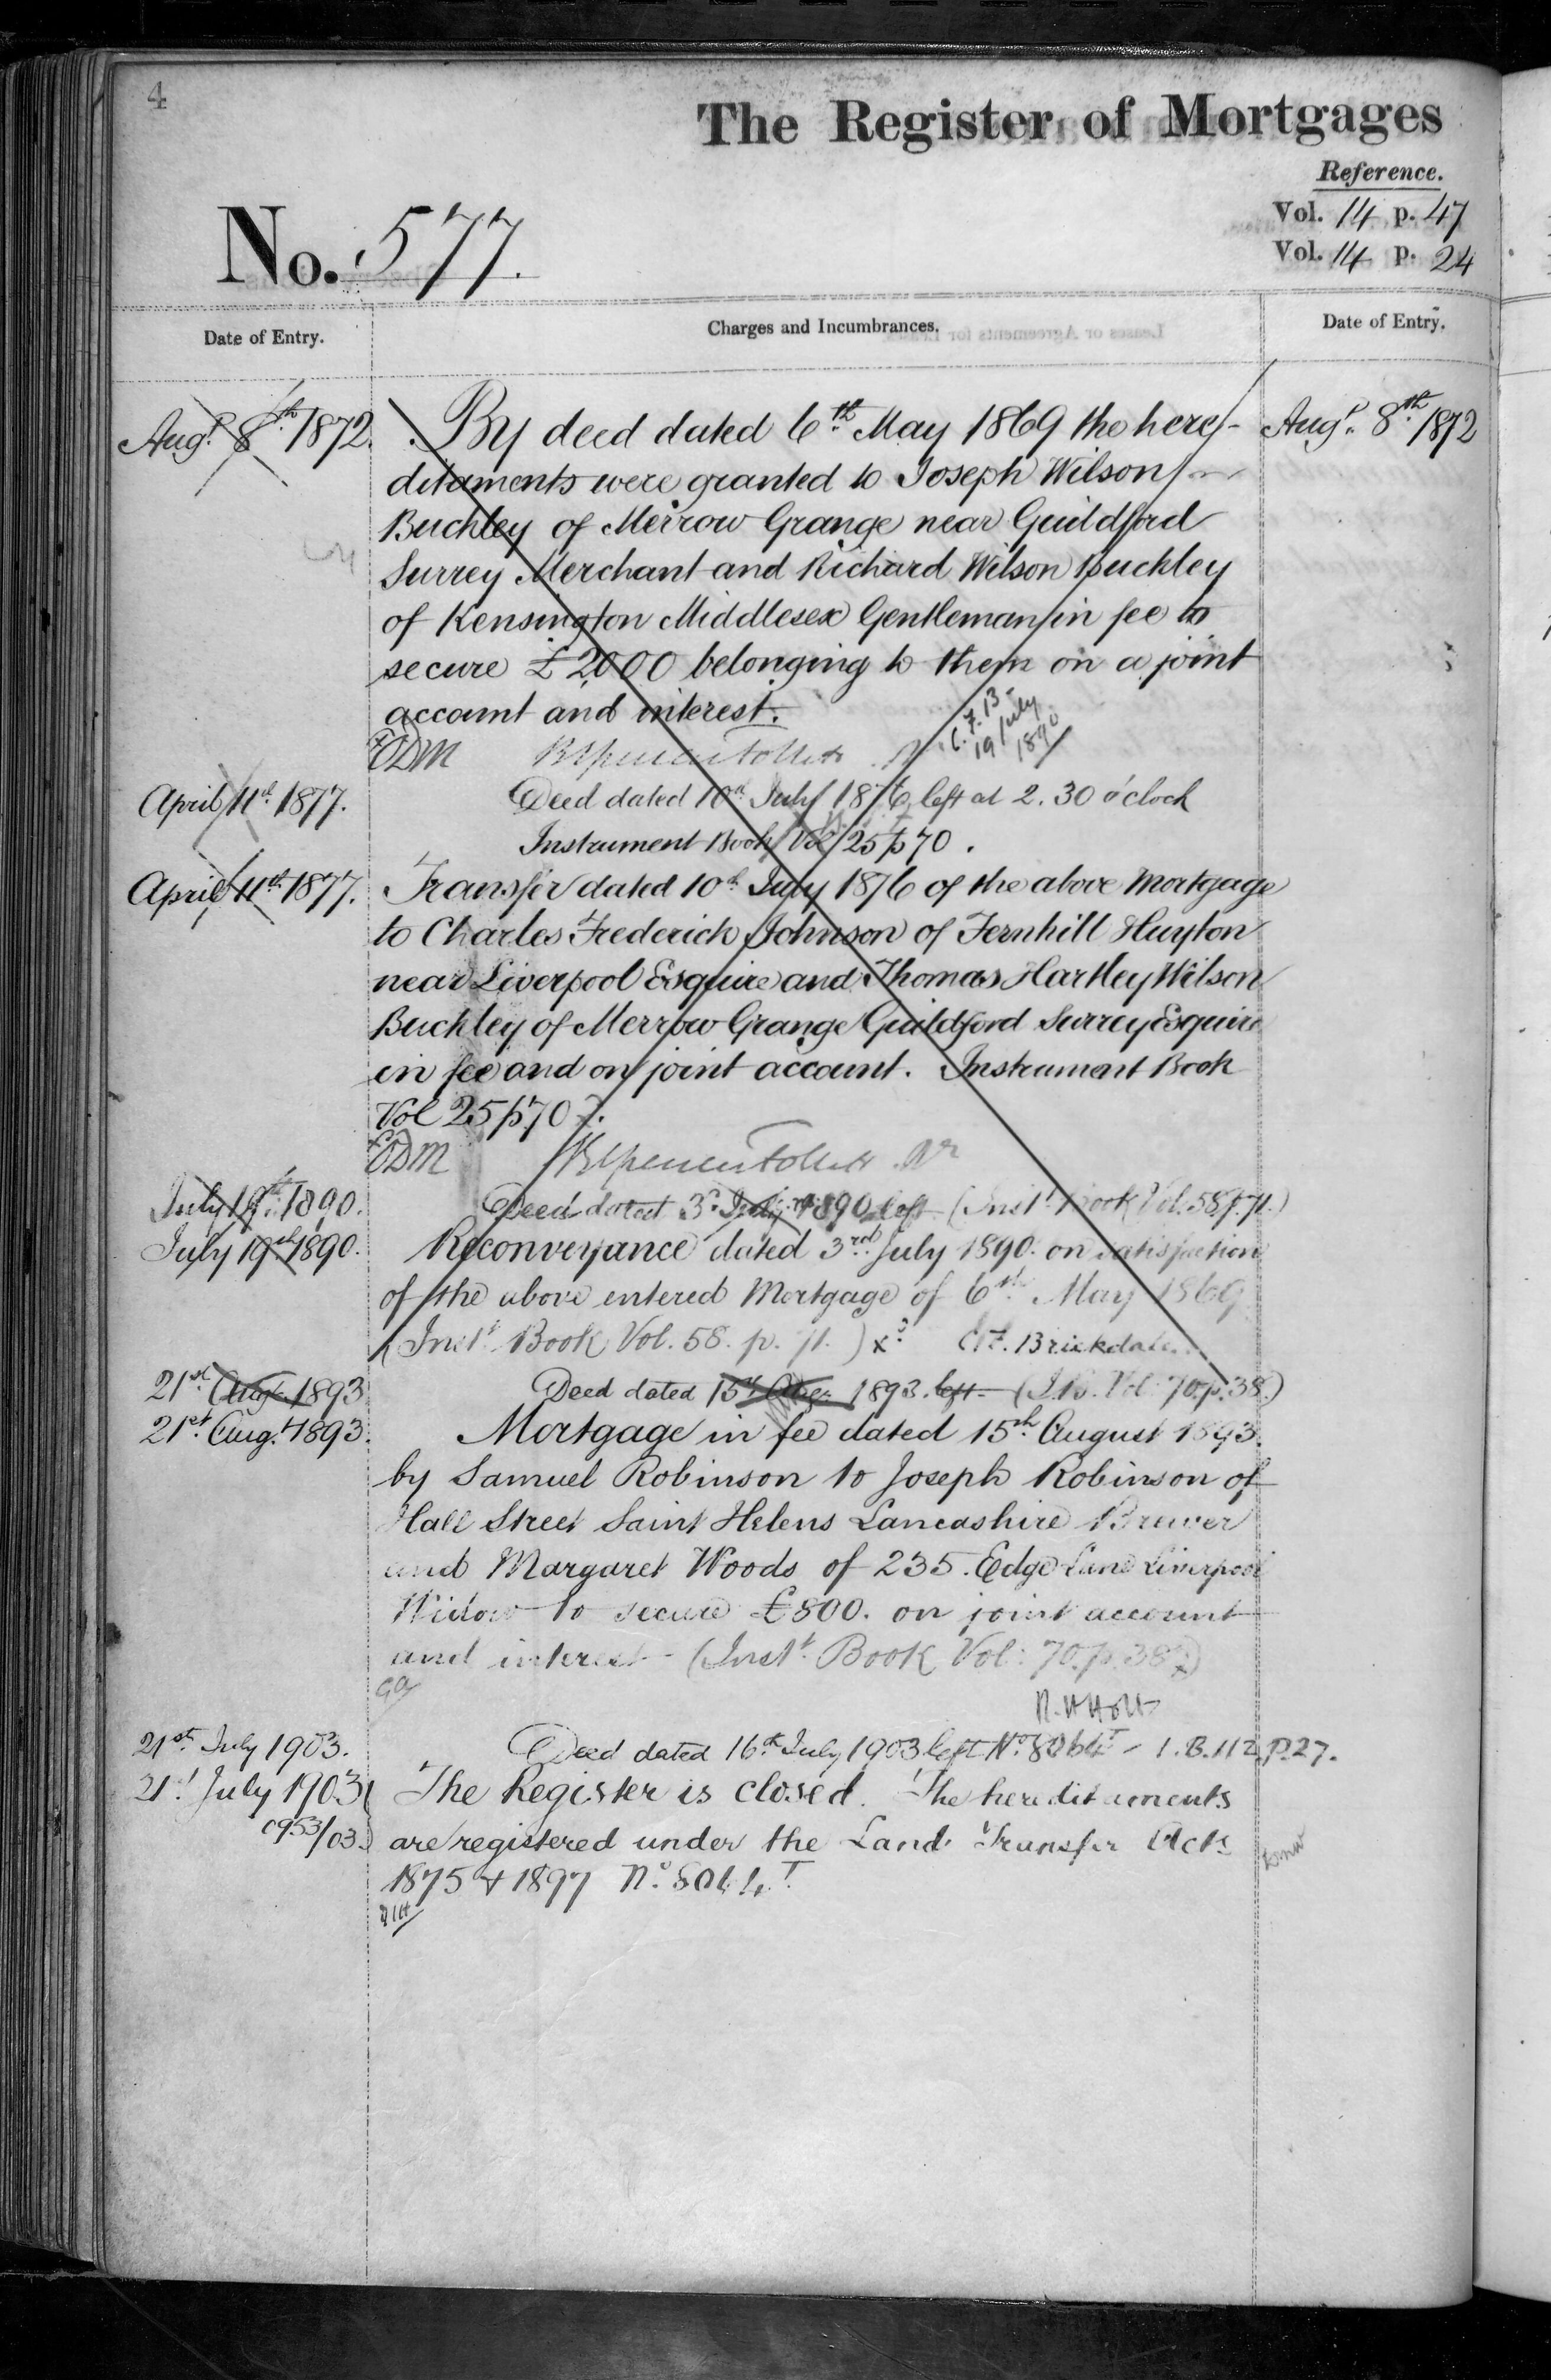 4
The Register of Mortgages
Reference.
Vol. 14 p. 47
Vol. 14 p. 24
No. 577.
Date of Entry.
Charges and Incumbrances.
Date of Entry.
Augt. 8th 1872. By deed dated 6th May 1869 the here- Augt. 8th 1872
ditaments were granted to Joseph Wilson
Buckley of Merrow Grange near Guildford
Surrey Merchant and Richard Wilson Buckley
of Kensington Middlesex Gentleman in fee to
secure £2000 belonging to them on a joint
account and interest.
C.F.B
19 July
1890
EDM
April 11th 1877. Deed dated 10th July 1876 left at 2.30 o'clock
Instrument Book Vol 25 p 70.
April 11th 1877. Transfer dated 10th July 1876 of the above Mortgage
to Charles Frederick Johnson of Fernhill Huyton
near Liverpool Esquire and Thomas Hartley Wilson
Buckley of Merrow Grange Guildford Surrey Esquire
in fee and on joint account. Instrument Book
Vol 25 p 70
EDM
July 19th 1890. Deed dated 3rd July 1890 left (Inst. Book Vol. 58 p. 71.)
July 19th 1890. Reconveyance dated 3rd July 1890 on satisfaction
of the above entered Mortgage of 6th May 1869
(Inst. Book Vol. 58. p. 71.) C F. Brickdale
21st Augt. 1893 Deed dated 15th Aug. 1893. left - (I.B. Vol: 70. p. 38.)
21st Aug. 1893. Mortgage in fee dated 15th August 1893.
by Samuel Robinson to Joseph Robinson of
Hall Street Saint Helens Lancashire Brewer
and Margaret Woods of 235. Edge Lane Liverpool
Widow to secure £800. on joint account
and interest - (Inst. Book Vol: 70. p. 38.)
R. H Holt
21st July 1903. Deed dated 16th July 1903 left No. 8064T - I.B. 112 P. 27.
21st July 1903 The Register is closed. The hereditaments
c953/03. are registered under the Land Transfer Acts
1875 & 1897 No. 8064T.